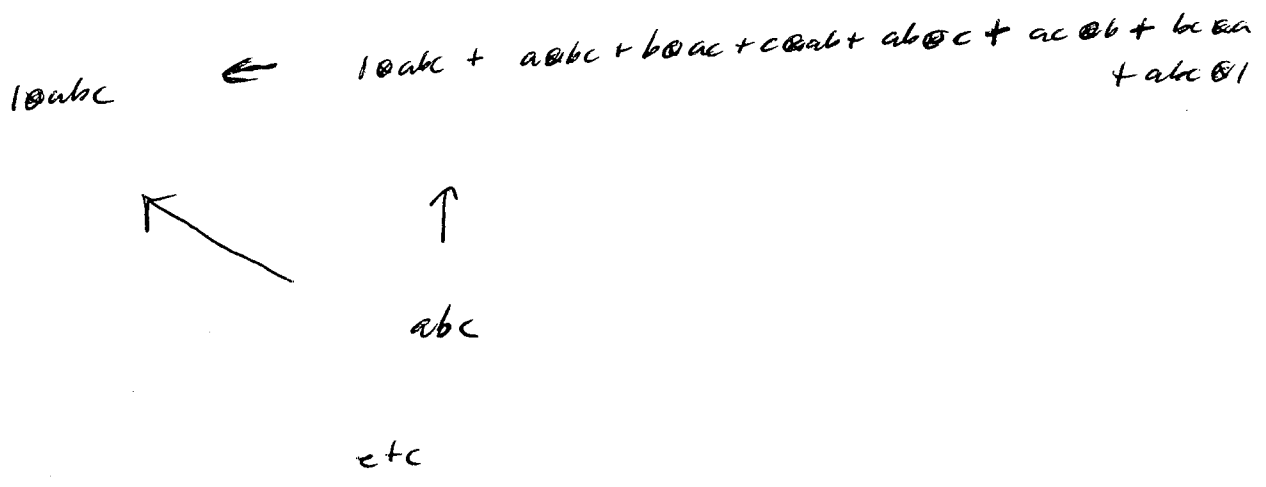 1⊗abc ← 1⊗abc + a⊗bc + b⊗ac + c⊗ab + ab⊗c + ac⊗b + bc⊗a
+ abc⊗1
↖ ↑
abc
etc